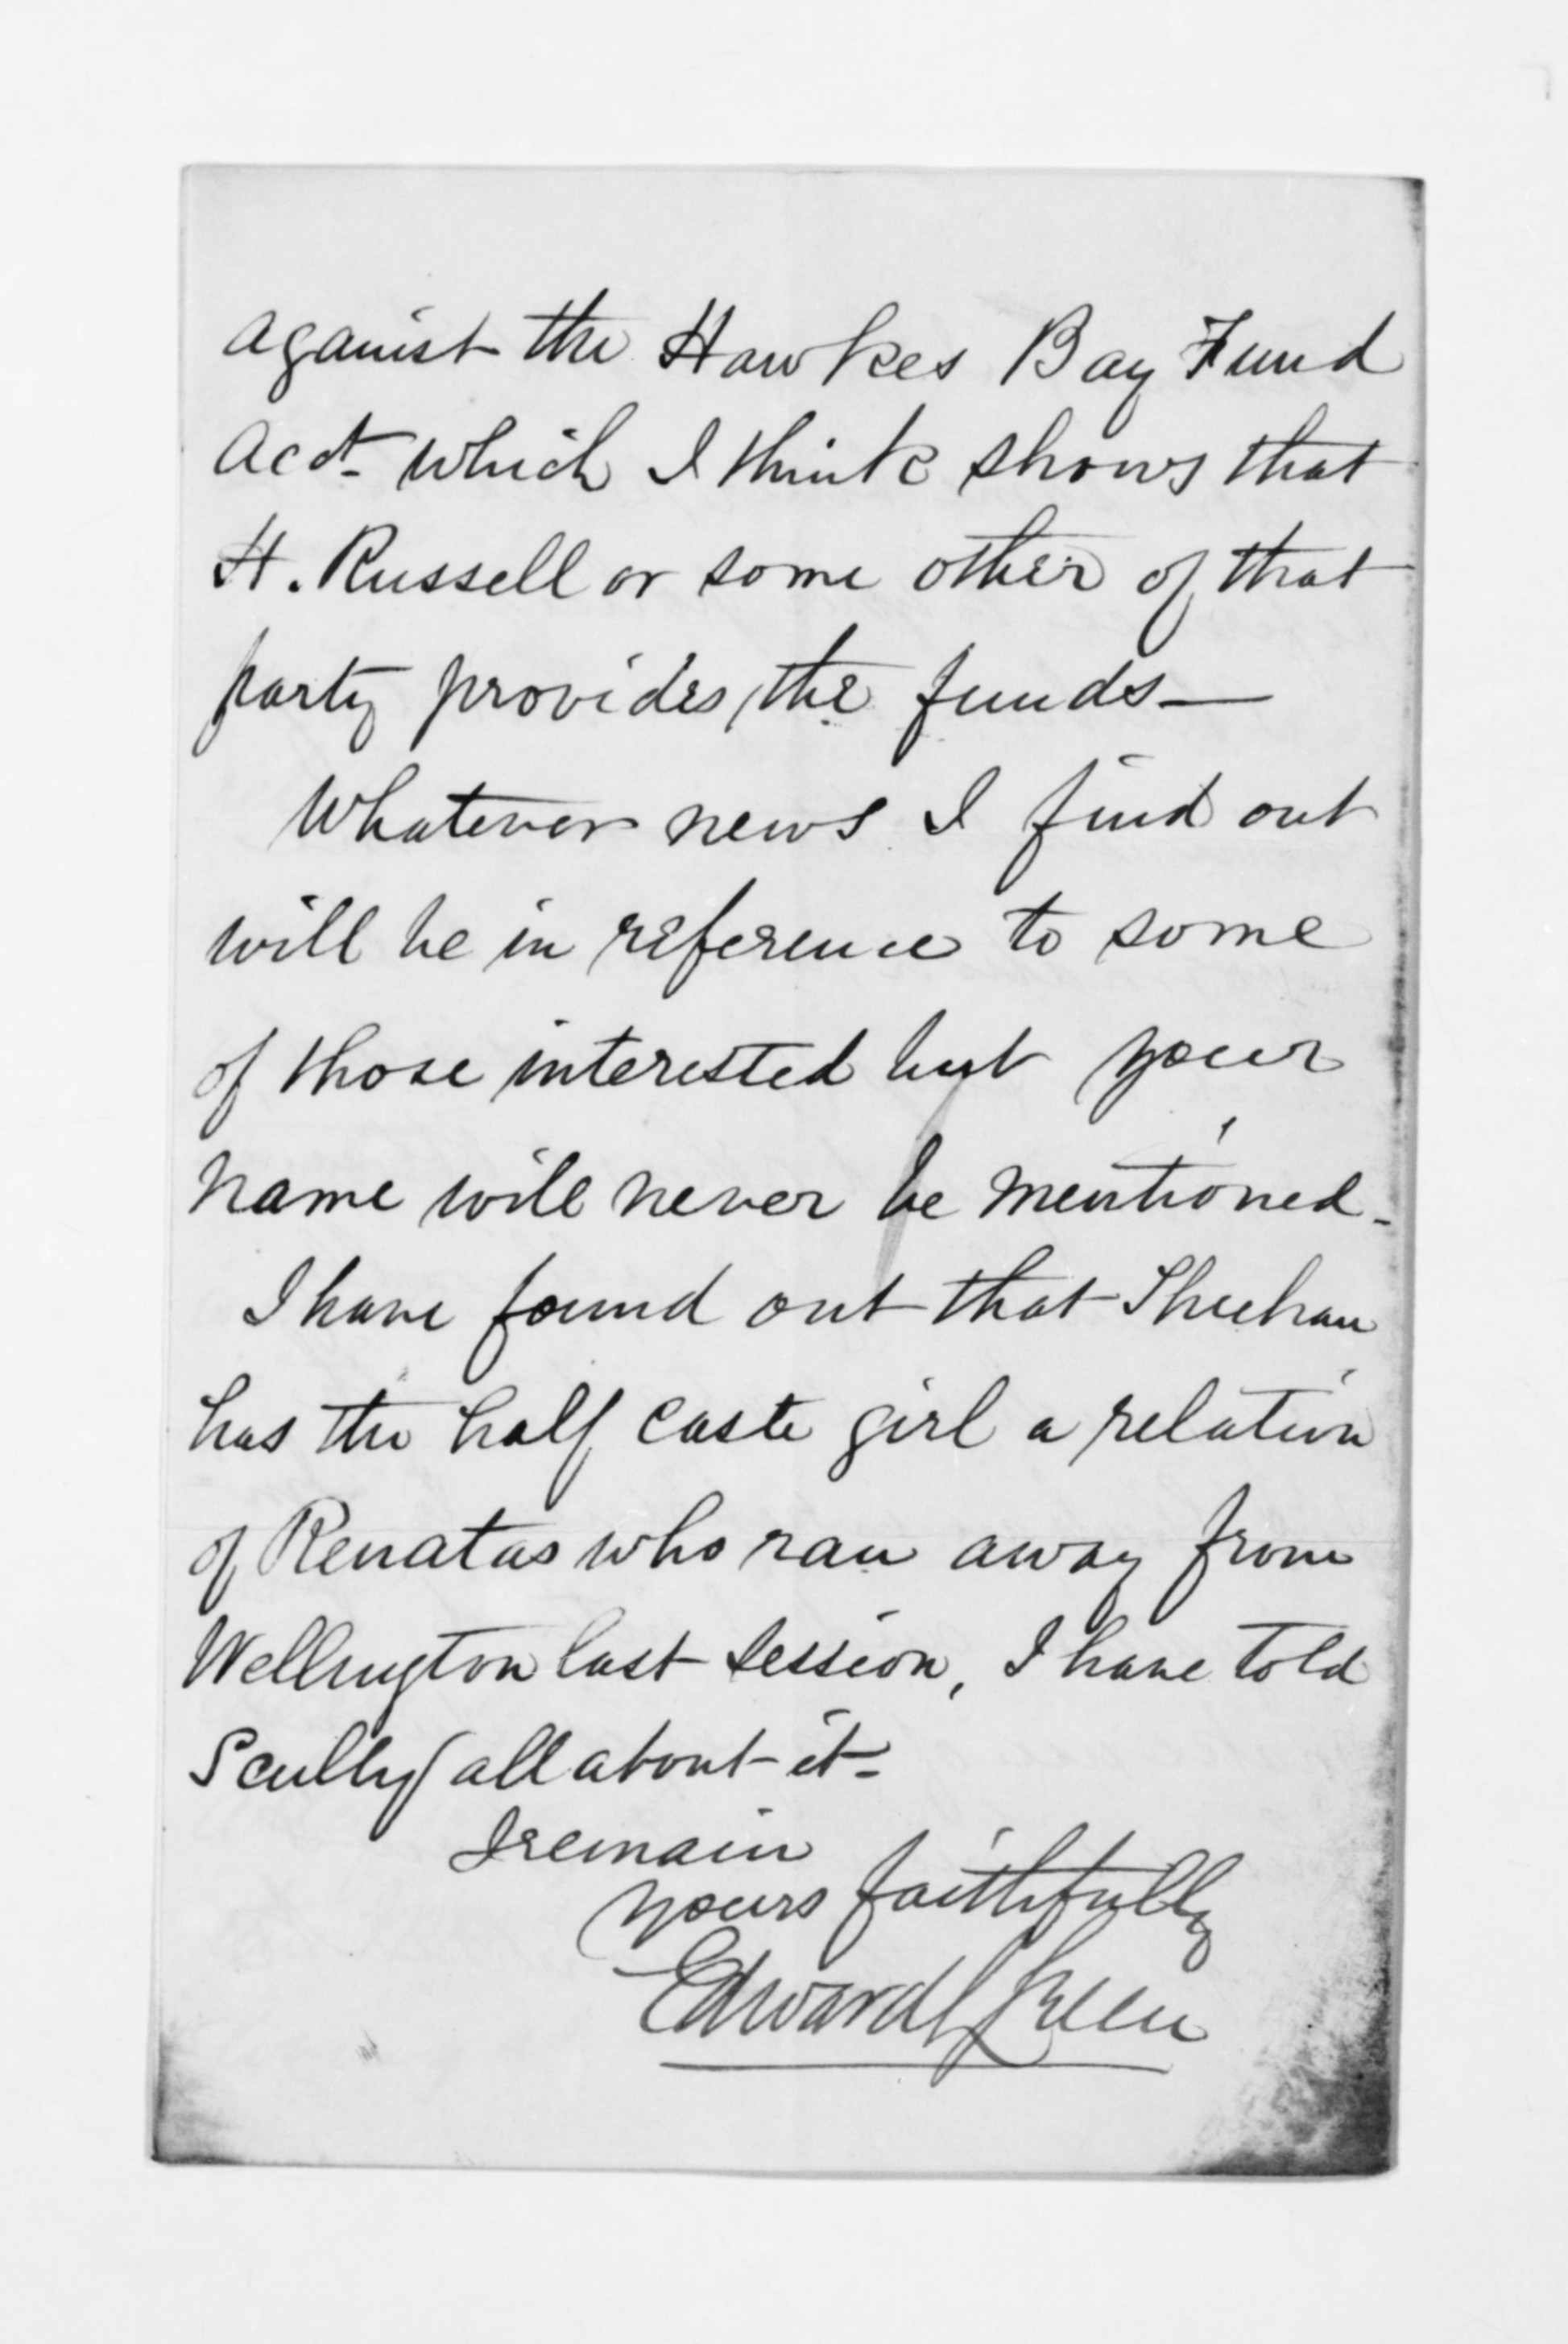 against the Hawkes Bay Fund
Acct which I think shows that
H. Russell or some other of that
party provides the funds—
Whatever news I find out
will be in reference to some
of those interested but your
name will never be mentioned-
I have found out that Sheehan
has the half caste girl a relation
of Renatas who ran away from
Wellington last session, I have told
Scully all about it-
I remain
yours faithfully
Edward